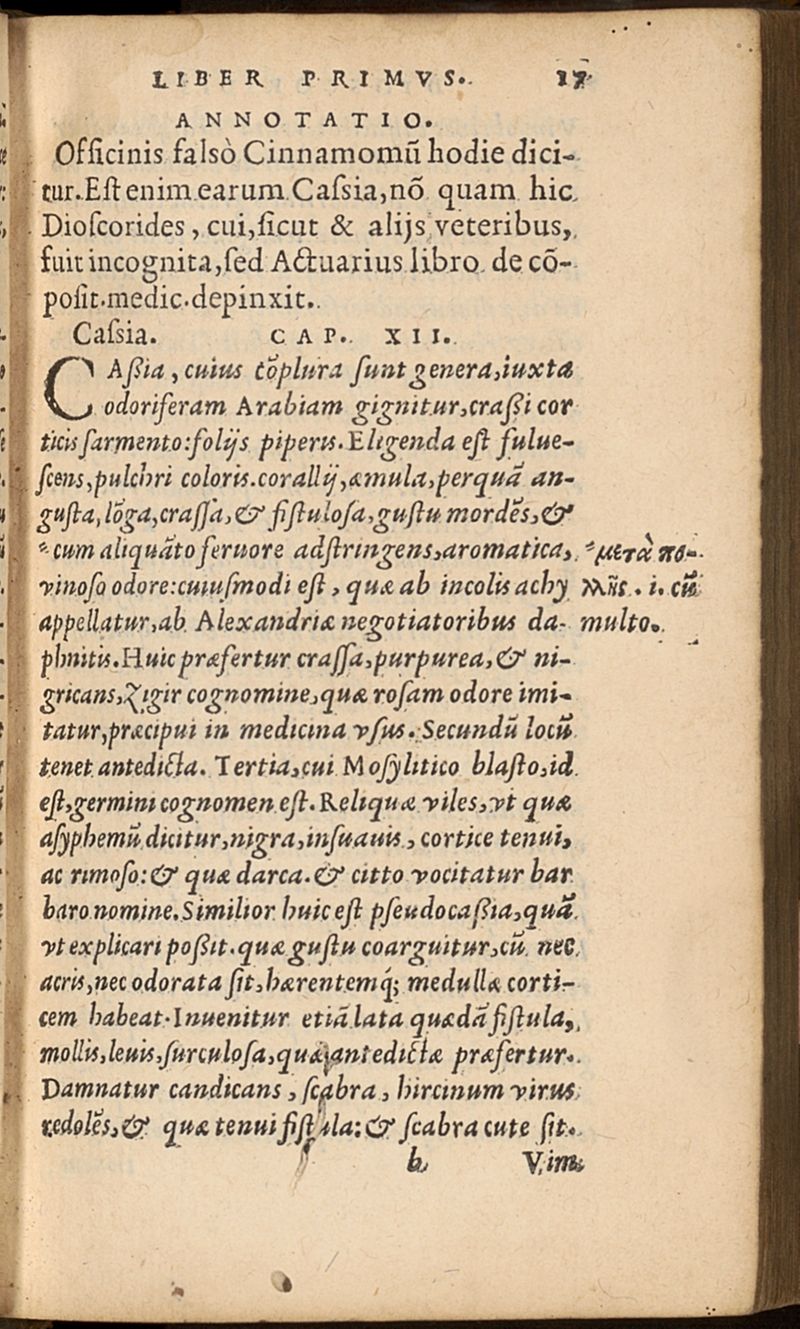 LIBER PRIMVS. 17
ANNOTATIO.
Officinis falsò Cinnamomũ hodie dici-
tur. Est enim earum Cassia, nõ quam hic
Dioscorides, cui, sicut & alijs veteribus,
fuit incognita, sed Actuarius libro de cõ-
posit. medic. depinxit.
Cassia. CAP. XII.
CAßia, cuius cõplura sunt genera, iuxta
odoriferam Arabiam gignitur, craßi cor
ticis sarmento: folijs piperis. Eligenda est fulue-
scens, pulchri coloris. corallij, æmula, perquã an-
gusta, lõga, crassa, & fistulosa, gustu mordẽs, &
"cum aliquãto feruore adstringens, aromatica,
vinoso odore: cuiusmodi est, quæ ab incolis achy
appellatur, ab Alexandriæ negotiatoribus da-
phnitis. Huic præfertur crassa, purpurea, & ni-
gricans, Zigir cognomine, quæ rosam odore imi-
tatur, præcipui in medicina vsus. Secundũ locũ
tenet antedicta. Tertia, cui Mosylitico blasto, id
est, germini cognomen est. Reliquæ viles, vt quæ
asyphemũ dicitur, nigra, insuauis, cortice tenui,
ac rimoso: & quæ darca. & citto vocitatur bar
baro nomine. Similior huic est pseudocaßia, quã
vt explicari poßit. quæ gustu coarguitur, cũ nec
acris, nec odorata sit, hærentemq́; medullæ corti-
cem habeat. Inuenitur etiã lata quædã fistula,
mollis, leuis, surculosa, quæ antedictæ præfertur.
Damnatur candicans, scabra, hircinum virus
redolẽs, & quæ tenui fistula: & scabra cute sit.
b Vim
"μετὰ πο-
λλῆς. i. cũ
multo.